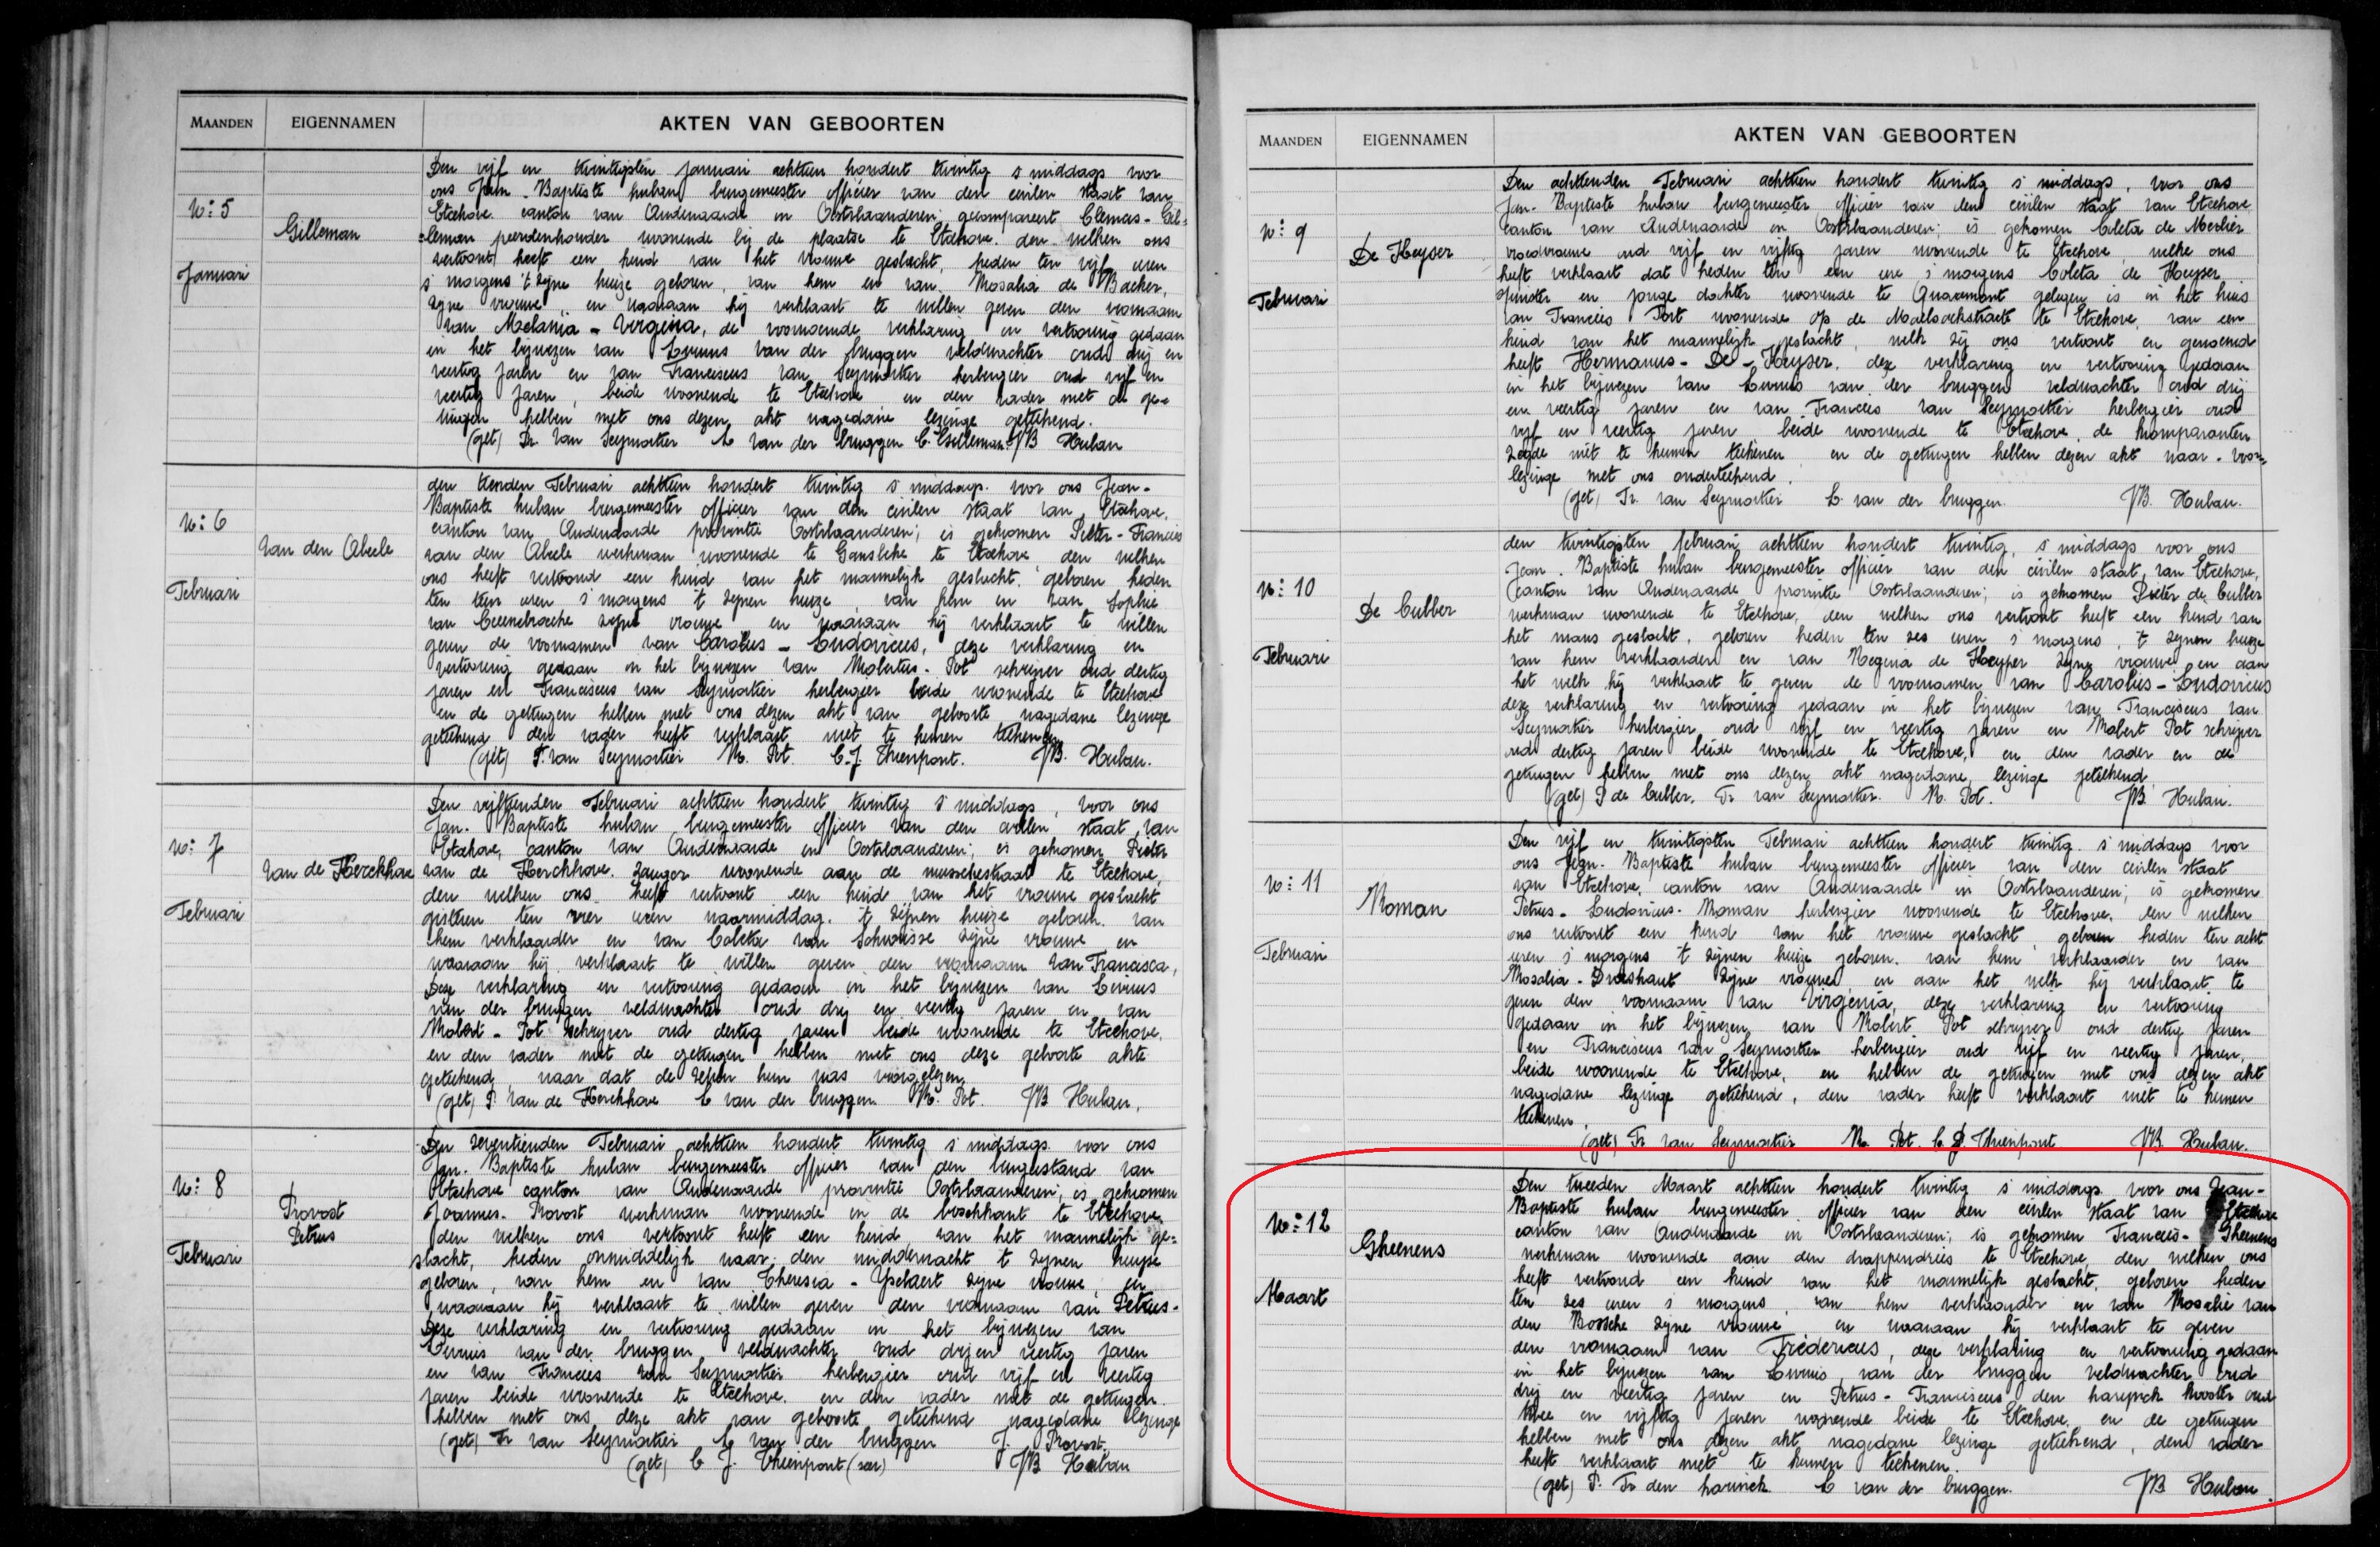 MAANDEN EIGENNAMEN AKTEN VAN GEBOORTEN
N: 5
Januari
Gilleman
Den vijf en twintigsten Januari achttien hondert twintig s middags voor
ons Jean-Baptiste huban burgemeester officier van den civilen staat van
Etichove canton van Audenaarde in Oostvlaanderen; gecompareert Clemens-Gil=
=leman peerdenhouder wonende bij de plaatse te Etichove. den welken ons
vertoont heeft een kind van het vrouwe geslacht, heden ten vijf uren
s morgens 't zijne huize geboren, van hem en van Rosalia de Backer,
zijne vrouwe, en waaraan hij verklaart te willen geven den voornaam
van Melania-Virginia, de voornoemde verklaring en vertooning gedaan
in het bijwezen van Livinus van der bruggen veldwachter oud drij en
veertig jaren en van Franciscus van Seymortier herbergier oud vijf en
veertig jaren, beide wonende te Etichove en den vader met de ge=
tuigen hebben met ons dezen akt nagedane lezinge geteekend.
(get) Fr. van Seymortier L van der bruggen C. Gilleman JB Huban
N: 6
Februari
Van den Abeele
den tienden Februari achttien hondert twintig s middags. voor ons Jean-
Baptiste huban burgemeester officier van den civilen staat van Etichove,
canton van Audenaarde provintie Oostvlaanderen; is gekomen Pieter-Francies
van den Abeele werkman woonende te Gansbeke te Etichove den welken
ons heeft vertoond een kind van het mannelijk geslacht. geboren heden
ten tien uren s morgens 't zijnen huize, van hem en van Sophie
van Ceenebroecke zijne vrouwe, en waaraan hij verklaart te willen
geven de voornamen van Carolus-Ludovicus, deze verklaring en
vertooning gedaan in het bijwezen van Robertus-Pot schrijver oud dertig
jaren en Franciscus van Seymortier herbergier beide woonende te Etichove
en de getuigen hebben met ons dezen akt van geboorte nagedane lezinge
geteekend den vader heeft verklaart niet te kunnen teekenen
(get) F. van Seymortier R. Pot. C.J. Thienpont. JB. Huban.
N: 7
Februari
Van de Kerckhove
Den vijftienden Februari achttien hondert twintig s middags, voor ons
Jan-Baptiste huban burgemeester officier van den civilen staat van
Etichove, canton van Audenaarde in Oostvlaanderen; is gekomen Pieter
van de Kerckhove. zanger woonende aan de musschestraat te Etichove,
den welken ons heeft vertoont een kind van het vrouwe geslacht
gisteren ten vier uren naarmiddag. 't zijnen huize geboren. van
hem verklaarder en van Coleta van Schoorisse zijne vrouwe en
waaraan hij verklaart te willen geven den voornaam van Francisca,
Deze verklaring en vertooning gedaan in het bijwezen van Livinus
van der bruggen veldwachter oud drij en veertig jaren en van
Robert-Pot schrijver oud dertig jaren beide woonende te Etichove.
en den vader met de getuigen hebben met ons deze geboorte akte
geteekend, naar dat de zelven hun was voorgelezen
(get) P. Van de Kerckhove L van der bruggen R. Pot. JB Huban,
N: 8
Februari
Provost
Petrus
Den zeventienden Februari achttien hondert twintig s middags voor ons
Jan-Baptiste huban burgemeester officier van den burgerstand van
Etichove canton van Audenaarde provintie Oostvlaanderen; is gekomen
Joannes-Provost werkman woonende in de boschkant te Etichove
den welken ons vertoont heeft een kind van het mannelijk ge=
slacht, heden onmiddelijk naar den middernacht 't zijnen huize
geboren, van hem en van Theresia-Ysebaert zijne vrouwe, en
waaraan hij verklaart te willen geven den voornaam van Petrus-
Deze verklaring en vertooning gedaan in het bijwezen van
Livinus van der bruggen veldwachter oud drij en veertig jaren
en van Francies van Seymortier herbergier oud vijf en veertig
jaren beide woonende te Etichove. en den vader met de getuigen
hebben met ons deze akt van geboorte geteekend nagedane lezinge
(get) Fr van Seymortier L van der bruggen J. Provost.
(get) C J. Thienpont (sec) JB Huban
MAANDEN EIGENNAMEN AKTEN VAN GEBOORTEN
N: 9
Februari
De Keyser
Den achttienden Februari achttien hondert twintig s' middags, voor ons
Jan-Baptiste huban burgemeester officier van den civilen staat van Etichove
canton van Audenaarde in Oostvlaanderen; is gekomen Coleta de Merlier
vroedvrouwe oud vijf en vijftig jaren wonende te Etichove, welke ons
heeft verklaart dat heden ten een ure s' morgens Coleta de Keyser,
spinster en jonge dochter woonende te Quaremont gelegen is in het huis
van Francies Port woonende op de Maelsackstraete te Etichove, van een
kind van het mannelijk geslacht, welk zij ons vertoont en genoemd
heeft Hermanus-De-Keyser. deze verklaring en vertooning gedaan
in het bijwezen van Livinus van der bruggen veldwachter oud drij
en veertig jaren en van Francies van Seymortier herbergier oud
vijf en veertig jaren beide woonende te Etichove, de komparanten
zegde niet te kunnen teekenen en de getuigen hebben dezen akt naar-voor=
lezinge met ons onderteekend.
(get) Fr. van Seymortier L. van der bruggen. JB. Huban.
N: 10
Februari
De Cubber
den twintigsten februari achttien hondert twintig, s' middags voor ons
Jean-Baptiste huban burgemeester officier van den civilen staat, van Etichove,
canton van Audenaarde provintie Oostvlaanderen; is gekomen Pieter de Cubber
werkman woonende te Etichove, den welken ons vertoont heeft een kind van
het mans geslacht, geboren heden ten zes uren s' morgens, 't zijnen huize
van hem verklaarder en van Regina de Keyser zijne vrouwe en aan
het welk hij verklaart te geven de voornamen van Carolus-Ludovicus
deze verklaring en vertooning gedaan in het bijwezen van Franciscus van
Seymortier herbergier oud vijf en veertig jaren en Robert Pot schrijver
oud dertig jaren beide woonende te Etichove, en den vader en de
getuigen hebben met ons dezen akt nagedane, lezinge geteekend
(get) P de Cubber. Fr van Seymortier. R. Pot. JB Huban.
N: 11
Februari
Roman
Den vijf en twintigsten Februari achttien hondert twintig. s' middags voor
ons Jean-Baptiste huban burgemeester officier van den civilen staat
van Etichove, canton van Audenaarde in Oostvlaanderen; is gekomen
Petrus-Ludovicus-Roman herbergier woonende te Etichove, den welken
ons vertoont een kind van het vrouwe geslacht, geboren heden ten acht
uren s' morgens 't zijnen huize geboren. van hem verklaarder en van
Rosalia-Droeshaut zijne vrouwe en aan het welk hij verklaart te
geven den voornaam van Virginia, deze verklaring en vertooning
gedaan in het bijwezen van Robert Pot schrijver oud dertig jaren
en Franciscus van Seymortier herbergier oud vijf en veertig jaren,
beide woonende te Etichove, en hebben de getuigen met ons dezen akt
nagedane lezinge geteekend, den vader heeft verklaart niet te kunnen
teekenen.
(get) Fr van Seymortier R. Pot. C. J. Thienpont JB. Huban.
N: 12
Maart
Gheenens
Den tweeden Maart achttien hondert twintig s' middags voor ons Jean-
Baptiste huban burgemeester officier van den civilen staat van Etichove
canton van Audenaarde in Oostvlaanderen; is gekomen Francies-Gheenens
werkman woonende aan den drappendries te Etichove, den welken ons
heeft vertoond een kind van het mannelijk geslacht, geboren heden
ten zes uren s morgens, van hem verklaarder en van Rosalie van
den Bossche zijne vrouwe en waaraan hij verklaart te geven
den voornaam van Fredericus, deze verklaring en vertooning gedaan
in het bijwezen van Livinus van der bruggen veldwachter oud
drij en veertig jaren en Petrus-Franciscus den harynck kooster oud
twee en vijftig jaren woonende beide te Etichove, en de getuigen
hebben met ons dezen akt nagedane lezinge geteekend, den vader
heeft verklaart niet te kunnen teekenen.
(get) P. Fr den harinck L van der bruggen. JB Huban.